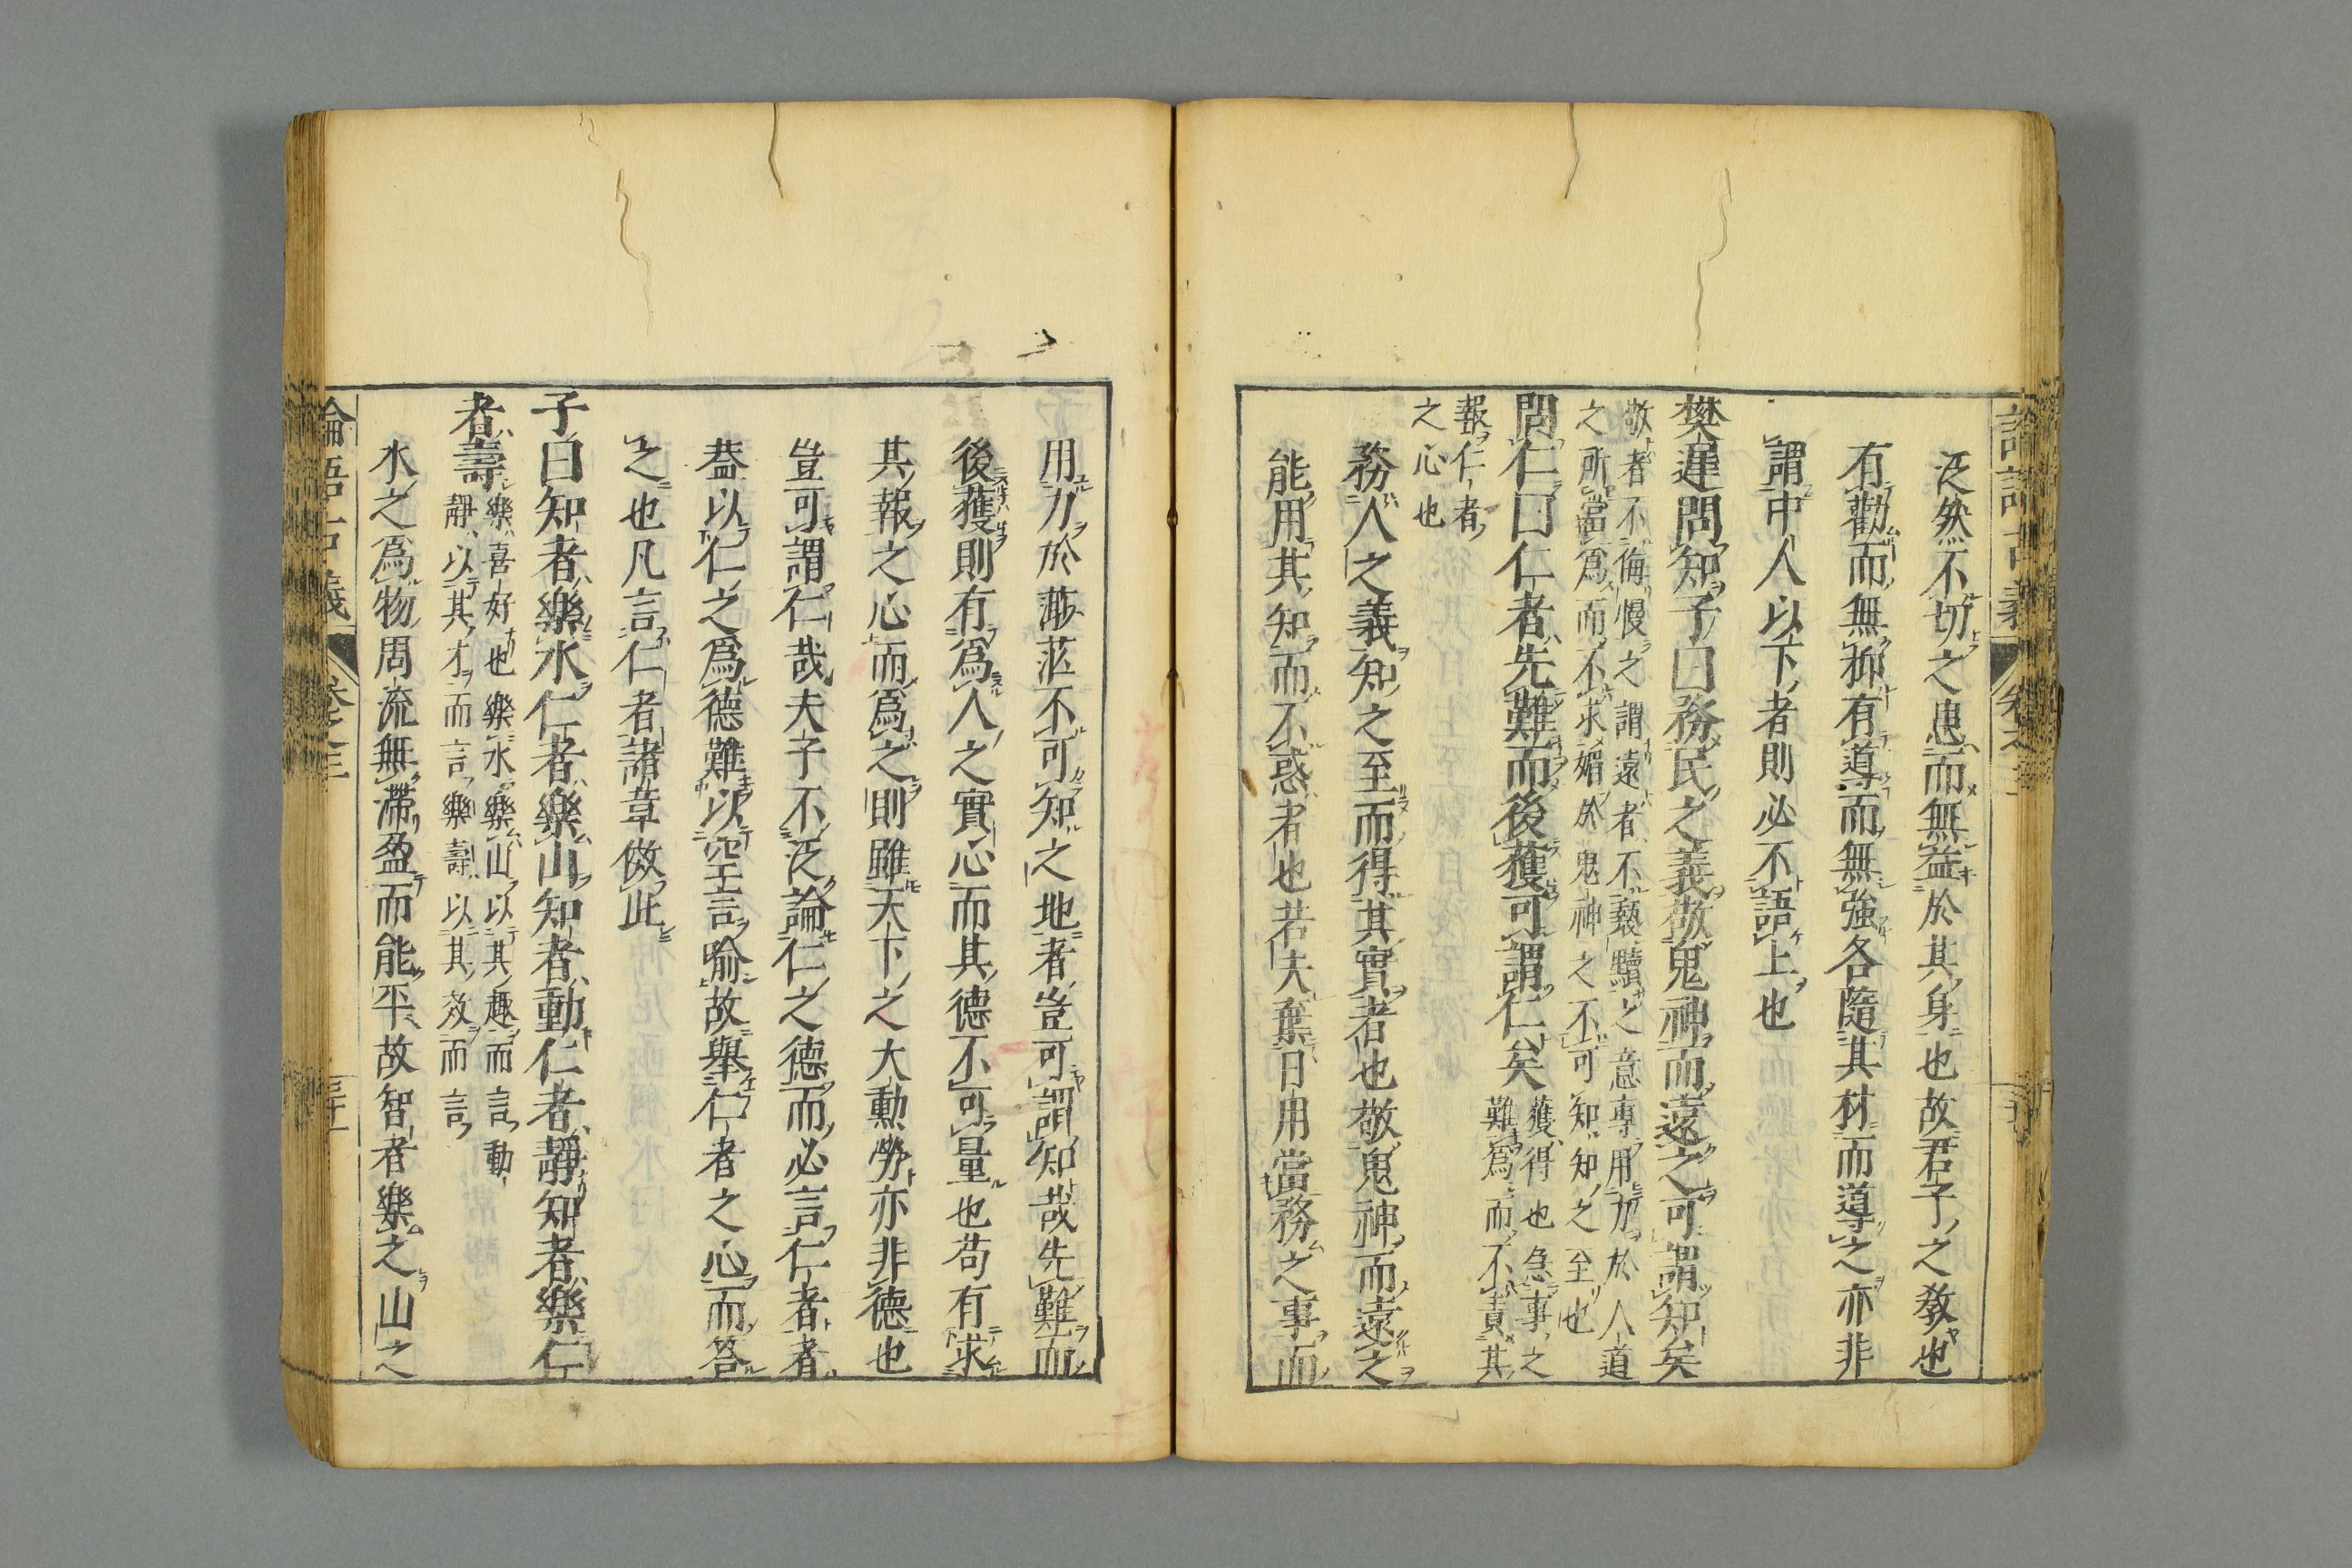 泛然不切之患而無益於其身也故君子之教也
有勸而無抑有導而無強各隨其材而導之亦非
謂中人以下者則必不語上也
樊遲問知子曰務民之義敬鬼神而遠之可謂知矣
敬者不侮慢之謂遠者不褻黷之意專用力於人道
之所當爲而不求媚於鬼神之不可知知之至也
問仁曰仁者先難而後獲可謂仁矣
獲得也急事之
難爲而不責其
報仁者
之心也
務人之義知之至而得其實者也敬鬼神而遠之
能用其知而不惑者也若夫棄日用當務之事而
用力於渺茫不可知之地者豈可謂知哉先難而
後獲則有爲人之實心而其德不可量也苟有求
其報之心而爲之則雖天下之大勲勞亦非德也
豈可謂仁哉夫子不泛論仁之德而必言仁者者
葢以仁之爲德難以空言喻故舉仁者之心而答
之也凡言仁者諸章倣此
子曰知者樂水仁者樂山知者動仁者靜知者樂仁
者壽
樂喜好也樂水樂山以其趣而言動
靜以其才而言樂壽以其效而言
水之爲物周流無滯盈而能平故智者樂之山之
論語古義
卷之三